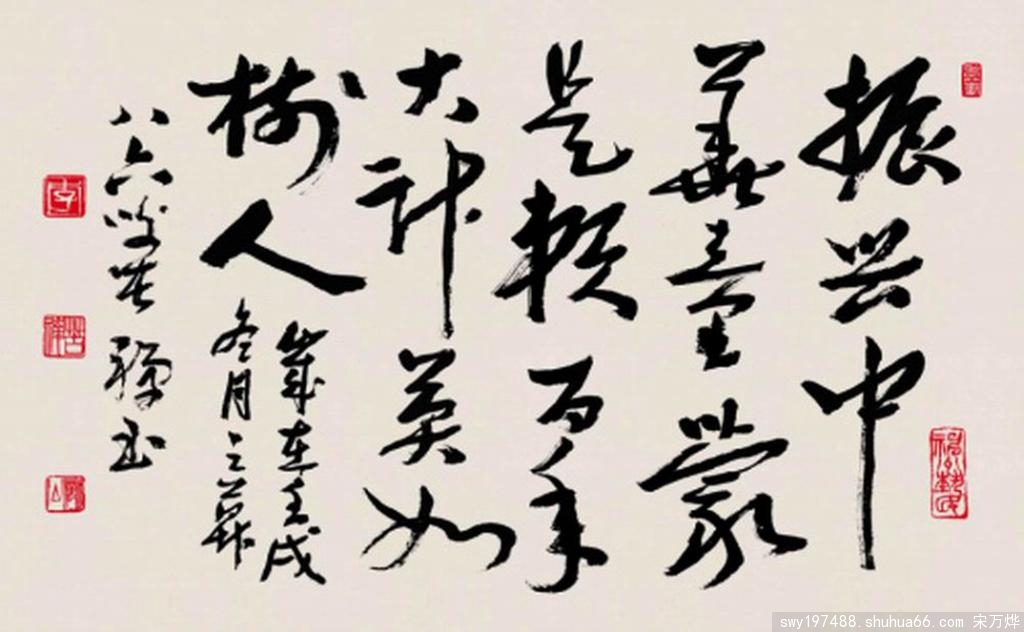 振兴中
華童蒙
是赖百年
大计莫如
树人
岁在壬戌
冬月之
八六叟苦禅书
swy197488.shuhua66.com 宋万烨